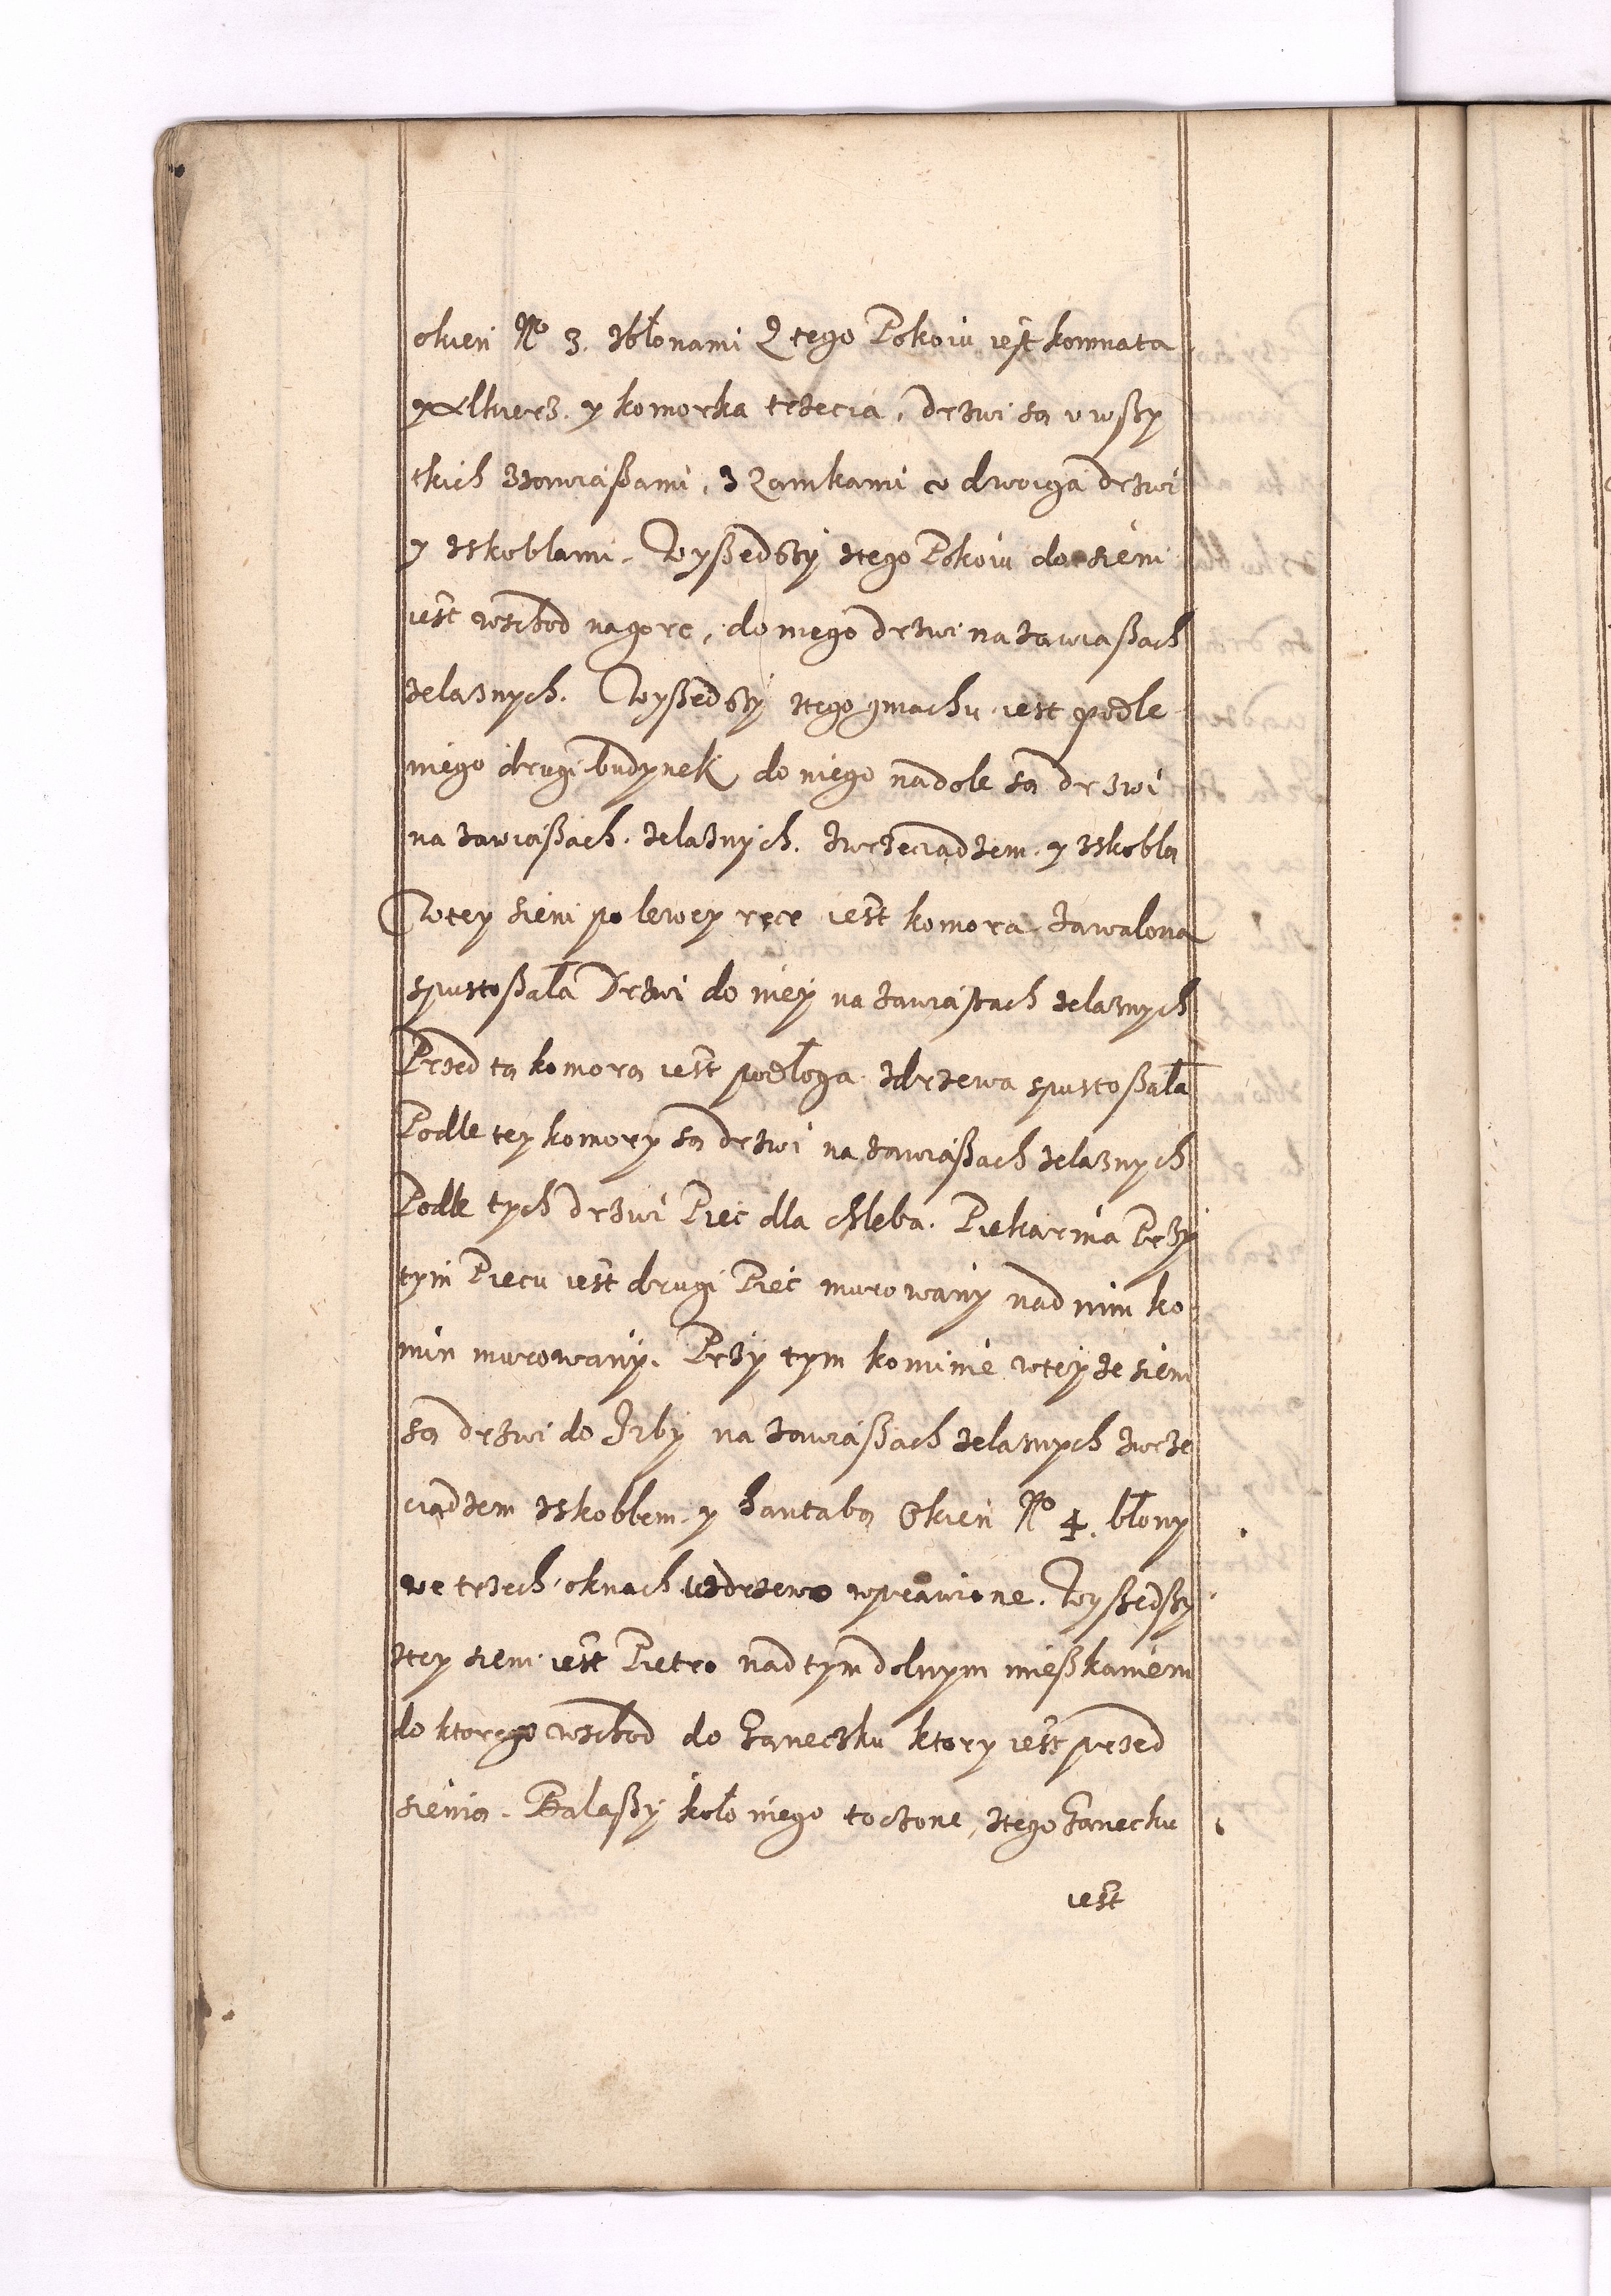 okien No 3. zbłonami Z tego Pokoiu iest komnata
y Alkierz. y komorka trzecia, drzwi są v wszy
tkich zzawiaßami, z Zamkami v dwoiga drzwi
y zskoblami. Wyßedßy ztego Pokoiu do sieni
iest wschod na gorę, do niego drzwi na zawiaßach
zelaznych. Wyßedßy ztego gmachu iest podle
niego drugi budynek do niego nadole są drzwi
na zawiaßach. zelaznych. zwrzeciądzem. y zskoblą
Wtey sieni po lewey ręce iest komora zawalona
spustoßała Drzwi do niey na zawiaßach zelaznych
Przed tą komorą iest podłoga zdrzewa spustoßała
Podle tey komory są drzwi na zawiaßach zelaznych
Podle tych drzwi Piec dla chleba. Piekarnia Przy
tym Piecu iest drugi Piec murowany nad nim ko
min murowany. Przy tym kominie wteyze sieni
są drzwi do Izby na zawiaßach zelaznych zwrze
ciądzem zskoblem. y hantabą Okien No 4. błony
we trzech oknach wdrzewo wprawione. Wyßedßy
ztey sieni iest Pietro nad tym dolnym mießkaniem
do ktorego wschod do Ganeczku ktory iest przed
sienią. Balaßy koło niego toczone, ztego Ganecku
iest